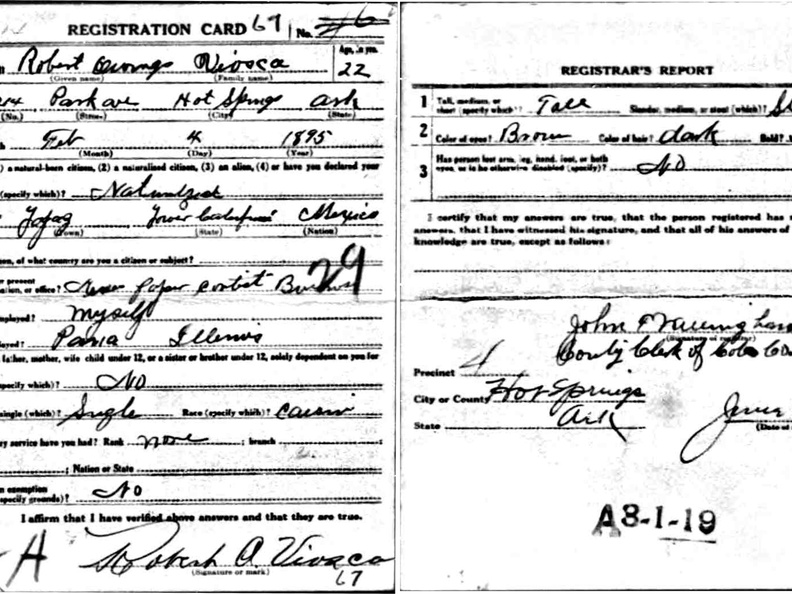 REGISTRATION CARD 67 No.
Robert Viosca 22
(Given name) (Family name) Age, in yrs.
Park ave Hot Springs ark
(No.) (Street) (City) (State)
Feb 4 1895
(Month) (Day) (Year)
) a natural-born citizen, (2) a naturalized citizen, (3) an alien, (4) or have you declared your
(specify which)? Naturalized
Mexico
(Town) (State) (Nation)
en, of what country are you a citizen or subject?
present
ation, or office? paper
29
ployed? myself
oyed? Pana Illinois
father, mother, wife child under 12, or a sister or brother under 12, solely dependent on you for
specify which)? No
single (which)? Single Race (specify which)?
ry service have you had? Rank none ; branch ;
; Nation or State
n exemption
specify grounds)? No
I affirm that I have verified above answers and that they are true.
A Robert A. Viosca
(Signature or mark)
67
REGISTRAR'S REPORT
1 Tall, medium, or short (specify which)? Tall Slender, medium, or stout (which)? Sl
2 Color of eyes? Brown Color of hair? dark Bald?
3 Has person lost arm, leg, hand, foot, or both eyes, or is he otherwise disabled (specify)? No
I certify that my answers are true, that the person registered has
answers, that I have witnessed his signature, and that all of his answers of
knowledge are true, except as follows:
John
(Signature of registrar)
Precinct 4 County Clerk of
City or County Hot Springs
State Ark June
(Date of
A8-1-19